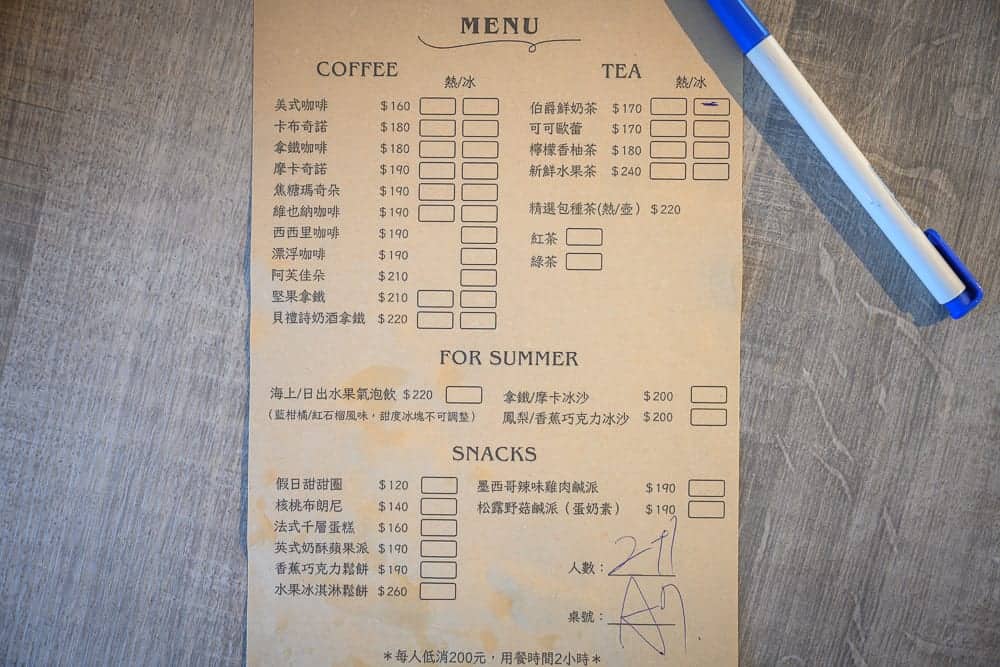 MENU
COFFEE
熱/冰
美式咖啡 $160
卡布奇諾 $180
拿鐵咖啡 $180
摩卡奇諾 $190
焦糖瑪奇朵 $190
維也納咖啡 $190
西西里咖啡 $190
漂浮咖啡 $190
阿芙佳朵 $210
堅果拿鐵 $210
貝禮詩奶酒拿鐵 $220
TEA
熱/冰
伯爵鮮奶茶 $170
可可歐蕾 $170
檸檬香柚茶 $180
新鮮水果茶 $240
精選包種茶(熱/壺) $220
紅茶
綠茶
FOR SUMMER
海上/日出水果氣泡飲 $220
(藍柑橘/紅石榴風味，甜度冰塊不可調整)
拿鐵/摩卡冰沙 $200
鳳梨/香蕉巧克力冰沙 $200
SNACKS
假日甜甜圈 $120
核桃布朗尼 $140
法式千層蛋糕 $160
英式奶酥蘋果派 $190
香蕉巧克力鬆餅 $190
水果冰淇淋鬆餅 $260
墨西哥辣味雞肉鹹派 $190
松露野菇鹹派（蛋奶素） $190
人數：
桌號：
＊每人低消200元，用餐時間2小時＊